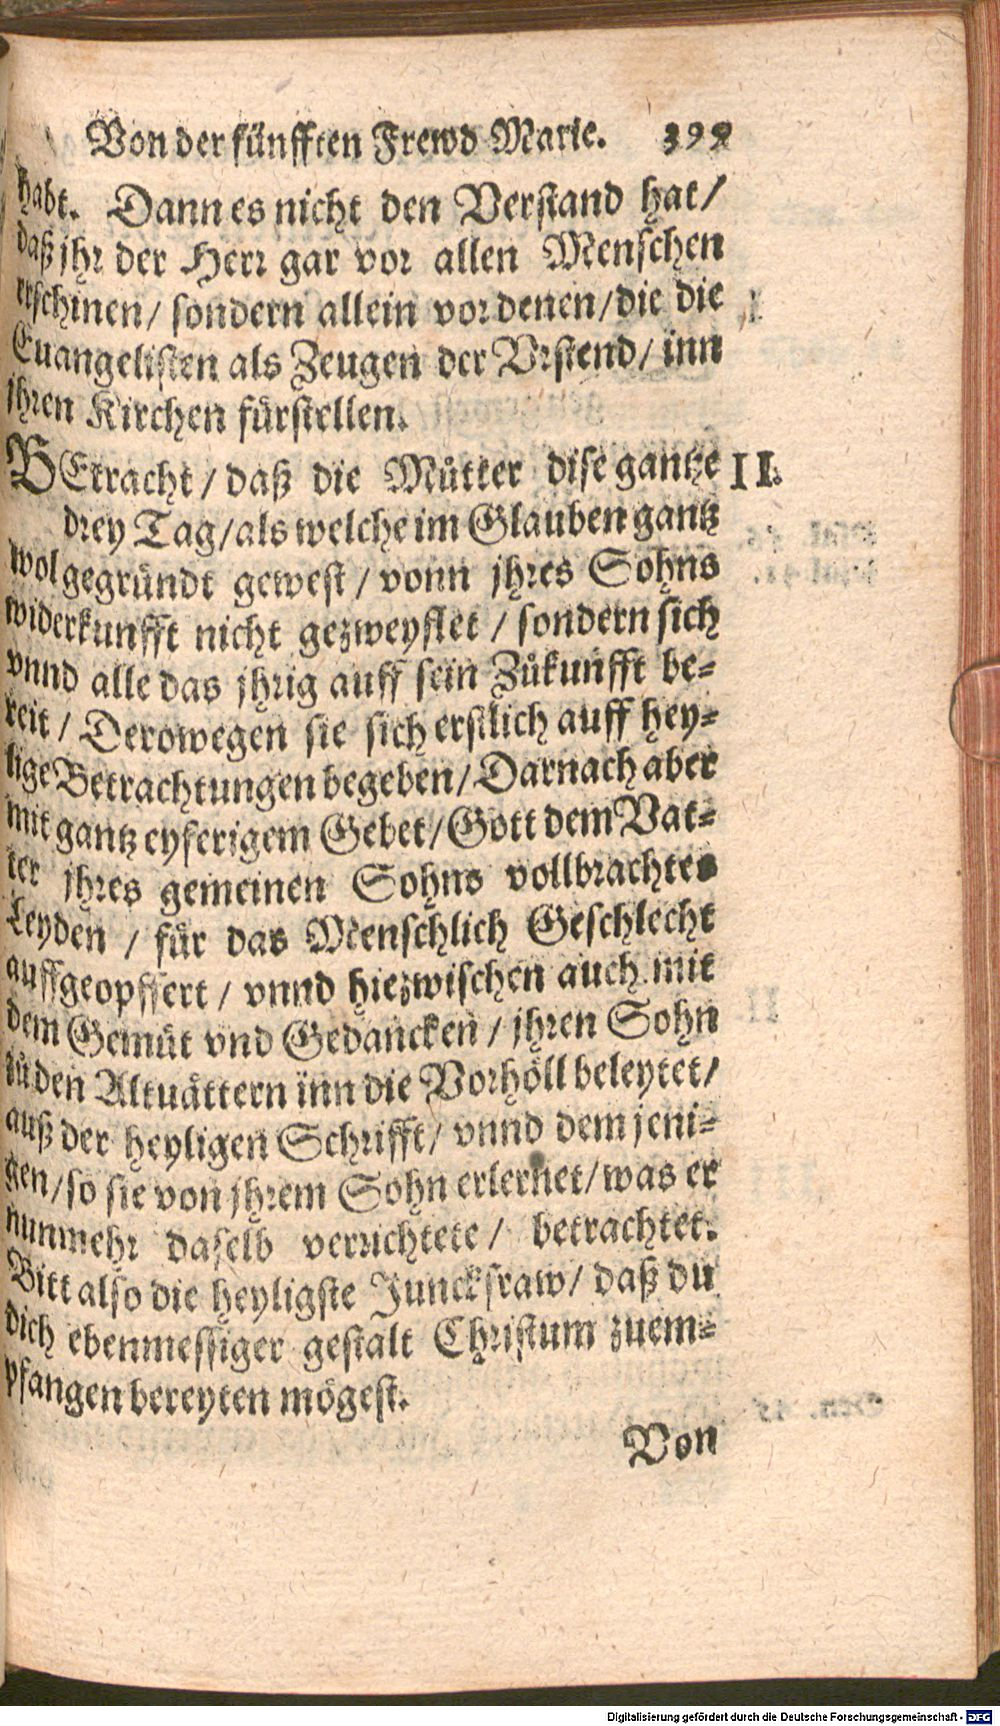 Von der fünfften Frewd Marie. 399
habt. Dann es nicht den Verstand hat/
daß jhr der Herr gar vor allen Menschen
erschinen/ sondern allein vor denen/ die die
Euangelisten als Zeugen der Vrstend/ inn
jhren Kirchen fürstellen.
BEtracht/ daß die Můtter dise gantze II.
drey Tag/ als welche im Glauben gantz
wol gegründt gewest/ vonn jhres Sohns
widerkunfft nicht gezweyflet/ sondern sich
vnnd alle das jhrig auff sein Zůkunfft be-
reit/ Derowegen sie sich erstlich auff hey-
lige Betrachtungen begeben/ Darnach aber
mit gantz eyferigem Gebet/ Gott dem Vat-
ter jhres gemeinen Sohns vollbrachtes
Leyden/ für das Menschlich Geschlecht
auffgeopffert/ vnnd hiezwischen auch mit
dem Gemüt vnd Gedancken/ jhren Sohn
zů den Altuättern inn die Vorhöll beleytet/
auß der heyligen Schrifft/ vnnd dem jeni-
gen/ so sie von jhrem Sohn erlernet/ was er
nunmehr daselb verrichtete/ betrachtet.
Bitt also die heyligste Junckfraw/ daß du
dich ebenmessiger gestalt Christum zuem-
pfangen bereyten mögest.
Von
Digitalisierung gefördert durch die Deutsche Forschungsgemeinschaft - DFG